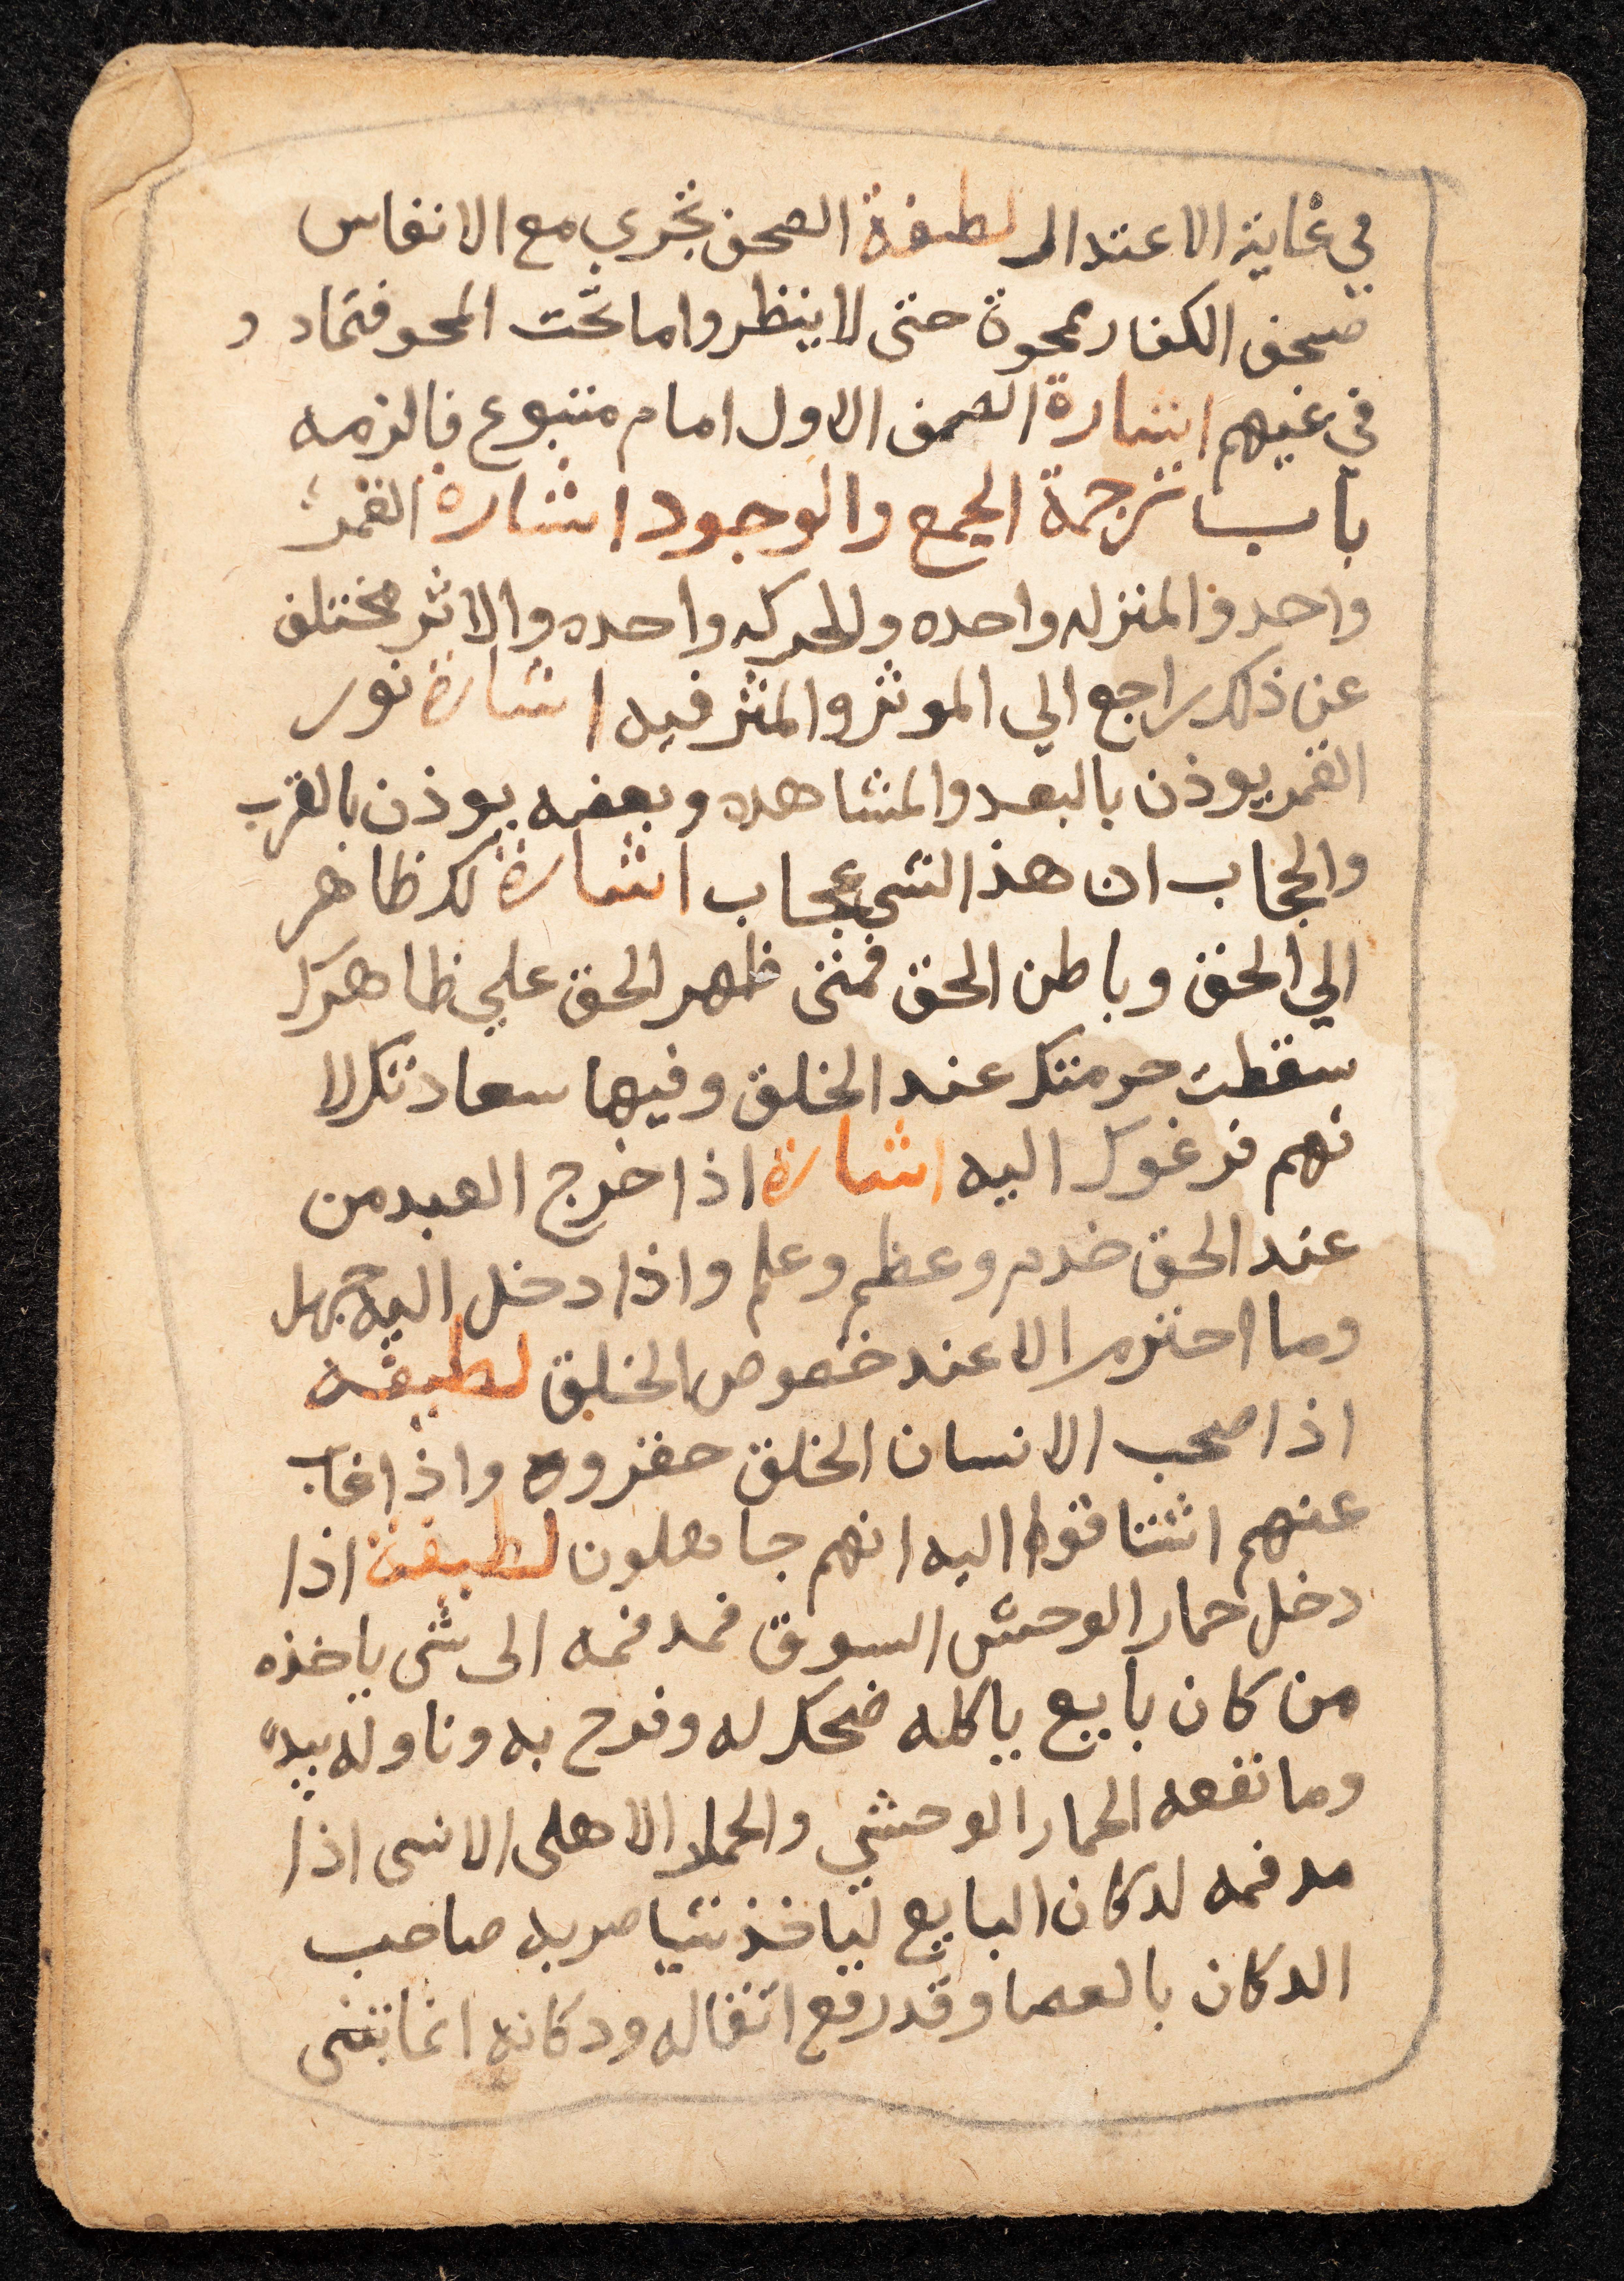 في غاية الاعتدال لطيفة الصحف تجري مع الانفاس
فصحف الكفار ممحوة حتى لا ينظروا ما تحت المحو فتمادو
في غيهم اشارة الصف الاول امام متبوع فالزمه
باب ترجمة الجمع والوجود اشارة القمر
واحد والمنزله واحده والحركه واحده والاثر مختلف
عن ذلك راجع الي الموثر والمثر فيه اشارة نور
القمر يوذن بالبعد والمشاهده وبعضه يوذن بالقرب
والحجاب ان هذا الشي عجاب اشارة لك ظاهر
الي الحق وباطن الحق فمتى ظهر الحق علي ظاهرك
سقطت حرمتك عند الخلق وفيها سعادتك لا
نهم فرغوك اليه اشارة اذا خرج العبد من
عند الحق خدم وعظم وعلم واذا دخل اليه جهل
وما احترم الا عند خصوص الخلق لطيفه
اذا صحب الانسان الخلق حقروه واذا غاب
عنهم اشتاقوا اليه انهم جاهلون لطيفة اذا
دخل حمار الوحش السوق فمد فمه الى شي ياخذه
من كان بايع ياكله ضحك له وفرح به وناوله بيده
وما نفعه الحمار الوحشي والحمار الاهلى الانسى اذا
مد فمه لدكان البايع لياخذ شيا ضربه صاحب
الدكان بالعصا وقد رفع اثقاله ودكانه انما بقى